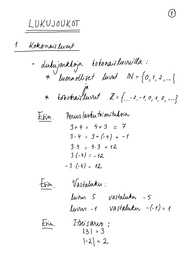 1
LUKUJOUKOT
1 Kokonaisluvut
• lukujoukkoja kokonaisluvuilla:
* luonnolliset luvut ℕ = {0, 1, 2, ...}
ja
* kokonaisluvut ℤ = {... -2, -1, 0, 1, 2, ...}
Esim. Peruslaskutoimituksia
3 + 4 = 4 + 3 = 7
3 - 4 = 3 + (-4) = -1
3 · 4 = 4 · 3 = 12
3 · (-4) = -12
-3 · (-4) = 12
Esim. Vastaluku:
luvun 5 vastaluku -5
luvun -1 vastaluku -(-1) = 1
Esim. Itseisarvo:
|3| = 3
|-2| = 2